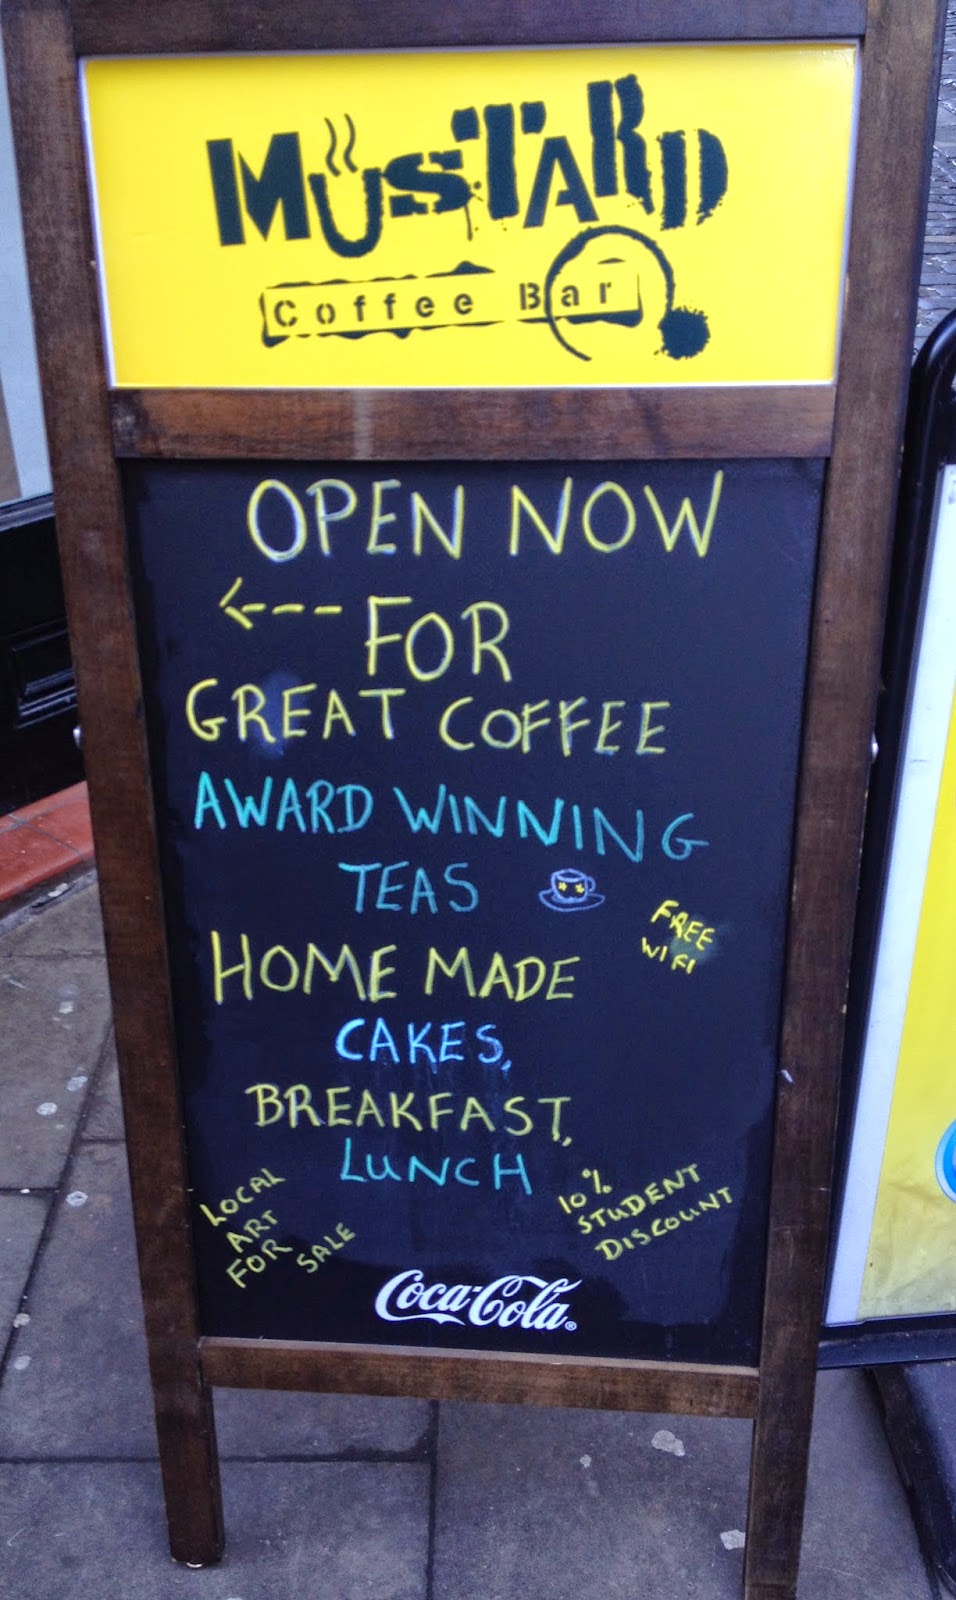 MUSTARD
Coffee Bar
OPEN NOW
<--- FOR
GREAT COFFEE
AWARD WINNING
TEAS
FREE
WIFI
HOME MADE
CAKES,
BREAKFAST,
LUNCH
LOCAL
ART
FOR
SALE
10%
STUDENT
DISCOUNT
Coca-Cola®